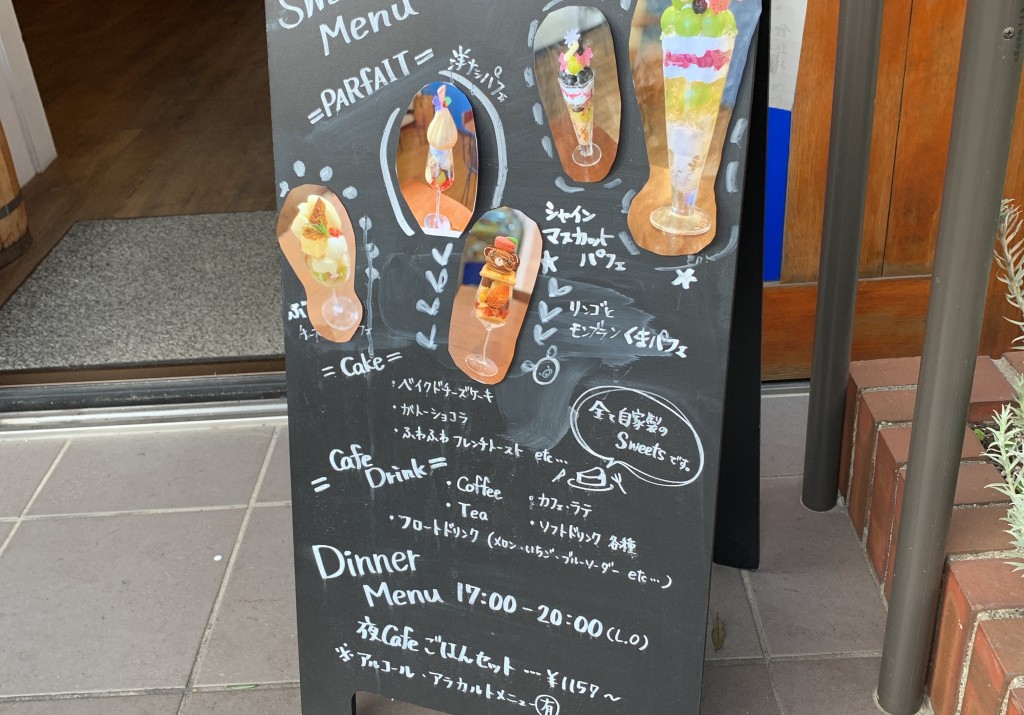 Menu
=PARfAIT=
洋ナシパフェ
シャイン
マスカット
パフェ
リンゴと
モンブラン くまパフェ
=Cake=
・ベイクドチーズケーキ
・ガトーショコラ
・ふわふわ フレンチトースト etc...
全て自家製の
Sweetsです。
=Cafe
Drink=
・Coffee
・カフェ・ラテ
・Tea
・ソフトドリンク 各種
・フロートドリンク (メロン、いちご、ブルーソーダー etc...)
Dinner
Menu 17:00-20:00(L.O)
夜Cafe ごはんセット ---¥1157~
※アルコール・アラカルトメニュー有